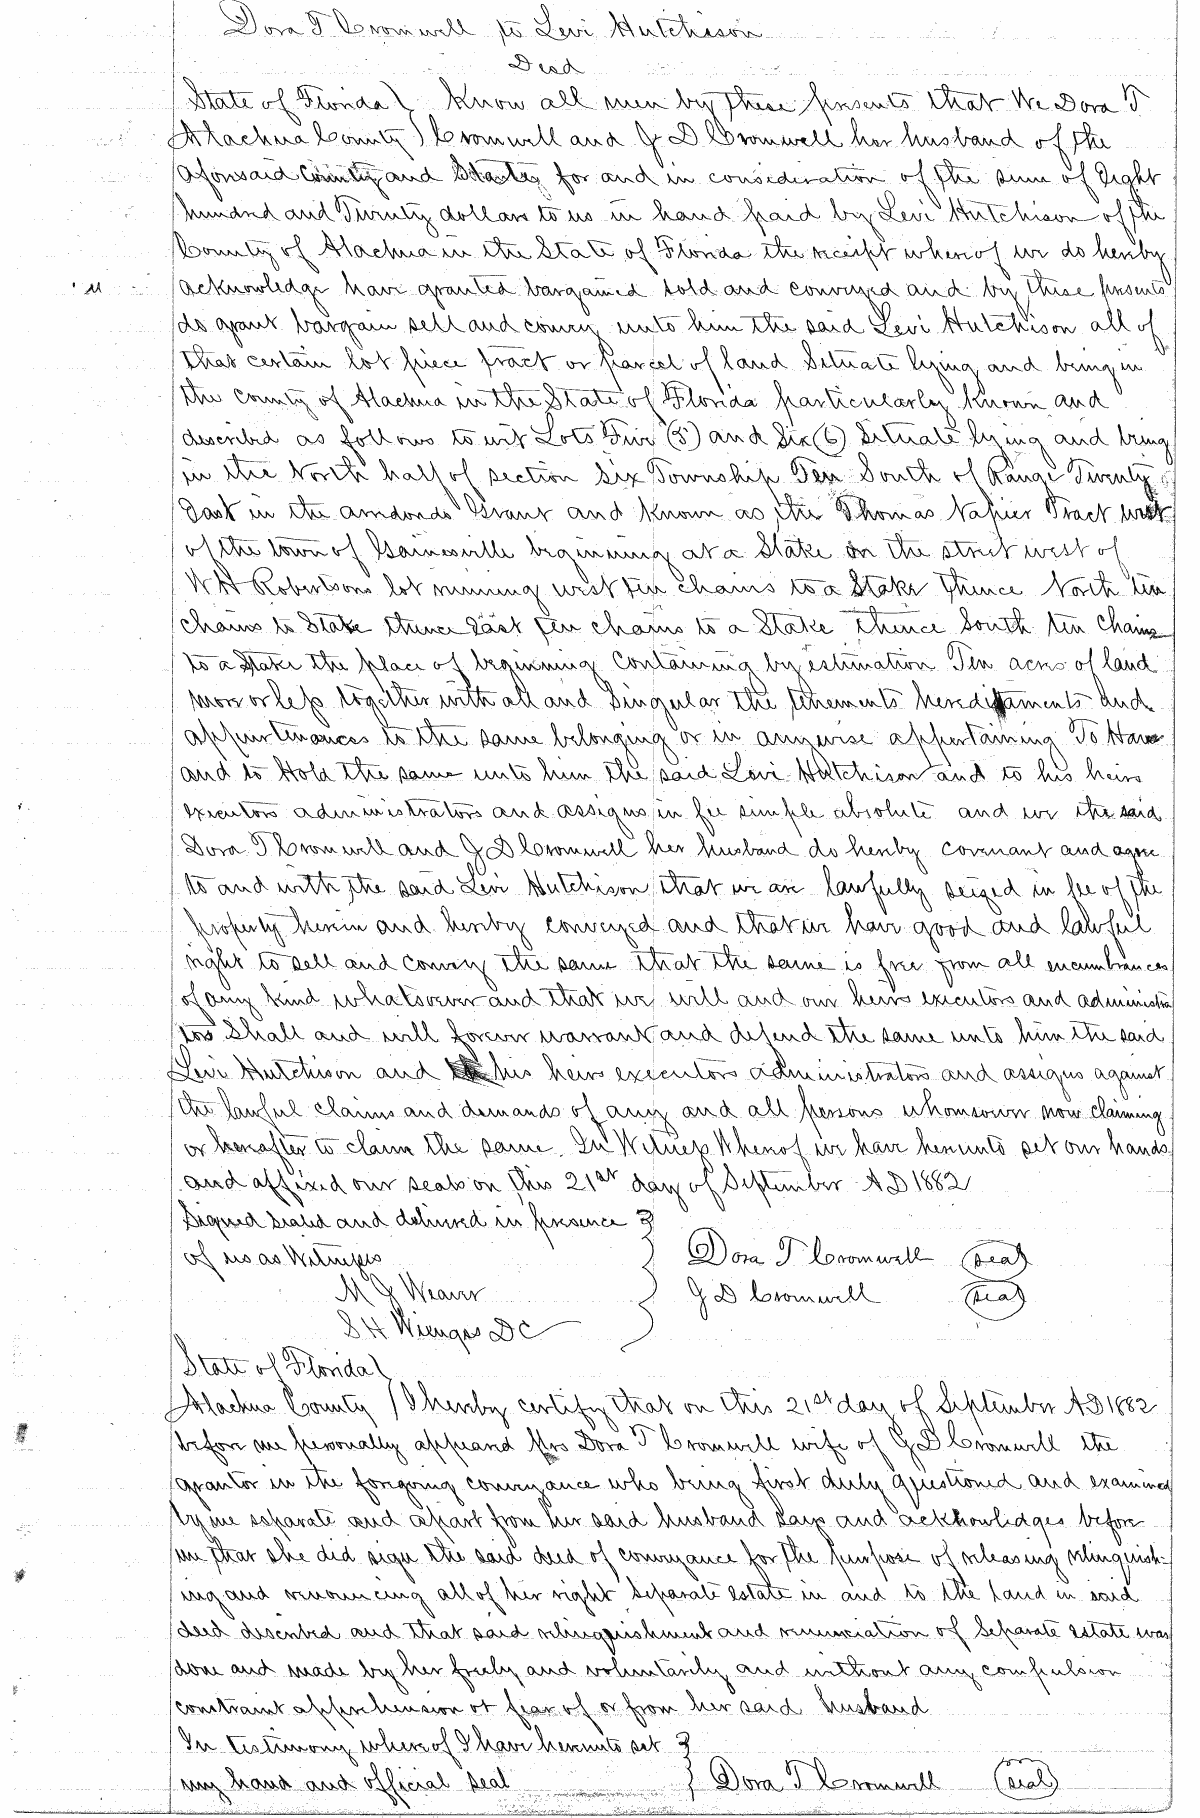 Dora T Cromwell to Levi Hutchison
Deed
State of Florida } Know all men by these presents that We Dora T
Alachua County } Cromwell and G D Cromwell her husband of the
aforesaid County and State for and in consideration of the sum of Eight
hundred and Twenty dollars to us in hand paid by Levi Hutchison of the
County of Alachua in the State of Florida the receipt whereof we do hereby
acknowledge have granted bargained sold and conveyed and by these presents
do grant bargain sell and convey unto him the said Levi Hutchison all of
that certain lot piece tract or parcel of land Situate lying and being in
the County of Alachua in the State of Florida particularly known and
described as follows to wit Lots Five (5) and Six (6) Situate lying and being
in the North half of section Six Township Ten South of Range Twenty
East in the arredondo Grant and known as the Thomas Napier Tract west
of the town of Gainesville beginning at a Stake on the street west of
W H Robertsons lot running west ten chains to a Stake thence North ten
chains to Stake thence East ten chains to a Stake thence South ten Chains
to a Stake the place of beginning Containing by estimation Ten acres of land
more or less together with all and Singular the tenements hereditaments and
appurtenances to the same belonging or in anywise appertaining To Have
and to Hold the same unto him the said Levi Hutchison and to his heirs
executors administrators and assigns in fee simple absolute and we the said
Dora T Cromwell and G D Cromwell her husband do hereby covenant and agree
to and with the said Levi Hutchison that we are lawfully seized in fee of the
property herein and hereby conveyed and that we have good and lawful
right to sell and convey the same that the same is free from all encumbrances
of any kind whatsoever and that we will and our heirs executors and administra
tors Shall and will forever warrant and defend the same unto him the said
Levi Hutchison and his heirs executors administrators and assigns against
the lawful claims and demands of any and all persons whomsoever now claiming
or hereafter to claim the same. In Witness Whereof we have hereunto set our hands
and affixed our seals on this 21st day of September A D 1882
Signed sealed and delivered in presence }
of us as Witnesses } Dora T Cromwell (seal)
M G Weaver } G D Cromwell (seal)
S H Wienges D C
State of Florida }
Alachua County } I hereby certify that on this 21st day of September A D 1882
before me personally appeared Mrs Dora T Cromwell wife of G D Cromwell the
grantor in the foregoing conveyance who being first duly questioned and examined
by me separate and apart from her said husband says and acknowledges before
me that she did sign the said deed of conveyance for the purpose of releasing relinquish-
ing and renouncing all of her right Separate estate in and to the land in said
deed described and that said relinquishment and renunciation of Separate estate was
done and made by her freely and voluntarily and without any compulsion
constraint apprehension or fear of or from her said husband
In testimony whereof I have hereunto set }
my hand and official seal } Dora T Cromwell (seal)